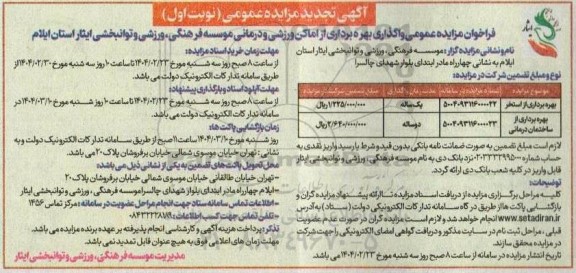 آگهی تجدید مزایده عمومی (نوبت اول)
فراخوان مزایده عمومی واگذاری بهره برداری از اماکن ورزشی و درمانی موسسه فرهنگی، ورزشی و توانبخشی ایثار استان ایلام
نام و نشانی مزایده گزار: موسسه فرهنگی، ورزشی و توانبخشی ایثار استان
ایلام به نشانی چهارراه مادر ابتدای بلوار شهدای چالسرا
نوع و مبلغ تضمین شرکت در مزایده:
موضوع مزایده | شماره مزایده در سامانه | مدت زمان واگذاری | مبلغ تضمین شرکت در مزایده
بهره برداری از استخر | 5004093116000022 | یک ساله | 1/325/000/000 ریال
بهره برداری از ساختمان درمانی | 5004093116000023 | دو ساله | 2/640/000/000 ریال
لازم است مبلغ تضمین به صورت ضمانت نامه بانکی بدون قید و شرط یا رسید واریز نقدی به
حساب شماره نزد بانک دی به نام موسسه فرهنگی، ورزشی و توانبخشی ایثار
قابل واریز در کلیه شعب بانک دی ارائه گردد.
توضیحات:
کلیه مراحل برگزاری مزایده از دریافت اسناد مزایده تا ارائه پیشنهاد مزایده گران و
بازگشایی پاکت ها از طریق درگاه سامانه تدارکات الکترونیکی دولت (ستاد) به آدرس
www.setadiran.ir انجام خواهد شد و لازم است مزایده گران در صورت عدم عضویت
قبلی، مراحل ثبت نام در سایت مذکور و دریافت گواهی امضای الکترونیکی را جهت شرکت
در مزایده محقق سازند.
تاریخ انتشار مزایده در سامانه از ساعت 8 صبح روز سه شنبه مورخ 1404/02/23 می باشد.
مهلت زمان خرید اسناد مزایده:
از ساعت 8 صبح روز سه شنبه مورخ 1404/02/23 تا ساعت 10 روز سه شنبه مورخ 1404/02/30 از
طریق سامانه تدارکات الکترونیک دولت می باشد.
مهلت آپلود اسناد و بارگذاری پیشنهاد:
از ساعت 8 صبح روز سه شنبه مورخ 1404/02/23 تا ساعت 10 روز شنبه مورخ 1404/03/10 از طریق
سامانه تدارکات الکترونیک دولت می باشد.
زمان بازگشایی پاکت ها:
روز شنبه مورخ ساعت 11 صبح از طریق سامانه تدارکات الکترونیک دولت و به
نشانی: تهران خیابان موسوی شمالی خیابان برفروشان پلاک 20 می باشد.
محل تحویل پاکت های تضمین به یکی از نشانی ذیل می باشد:
-تهران خیابان طالقانی خیابان موسوی شمالی خیابان برفروشان پلاک 20
-ایلام چهارراه مادر ابتدای بلوار شهدای چالسرا موسسه فرهنگی، ورزشی و توانبخشی ایثار
- اطلاعات تماس سامانه ستاد جهت انجام مراحل عضویت در سامانه: مرکز تماس 1456
- تلفن تماس جهت کسب اطلاعات:
تذکر: پرداخت هزینه آگهی و کارشناسی انجام پذیرفته بر عهده برنده مزایده می باشد.
مهلت زمان های اعلامی فوق به هیچ عنوان قابل تمدید نمی باشد.
مدیریت موسسه فرهنگی، ورزشی و توانبخشی ایثار